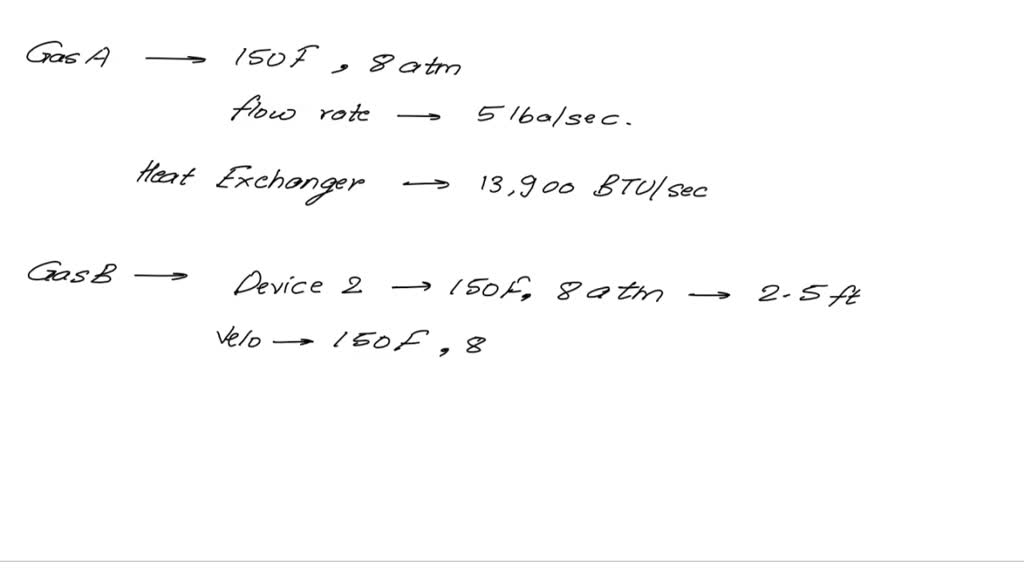 Gas A → 150F, 8 atm
flow rate → 5 lba/sec.
Heat Exchanger → 13,900 BTU/sec
Gas B → Device 2 → 150F, 8 atm → 2.5 ft
Velo → 150F, 8